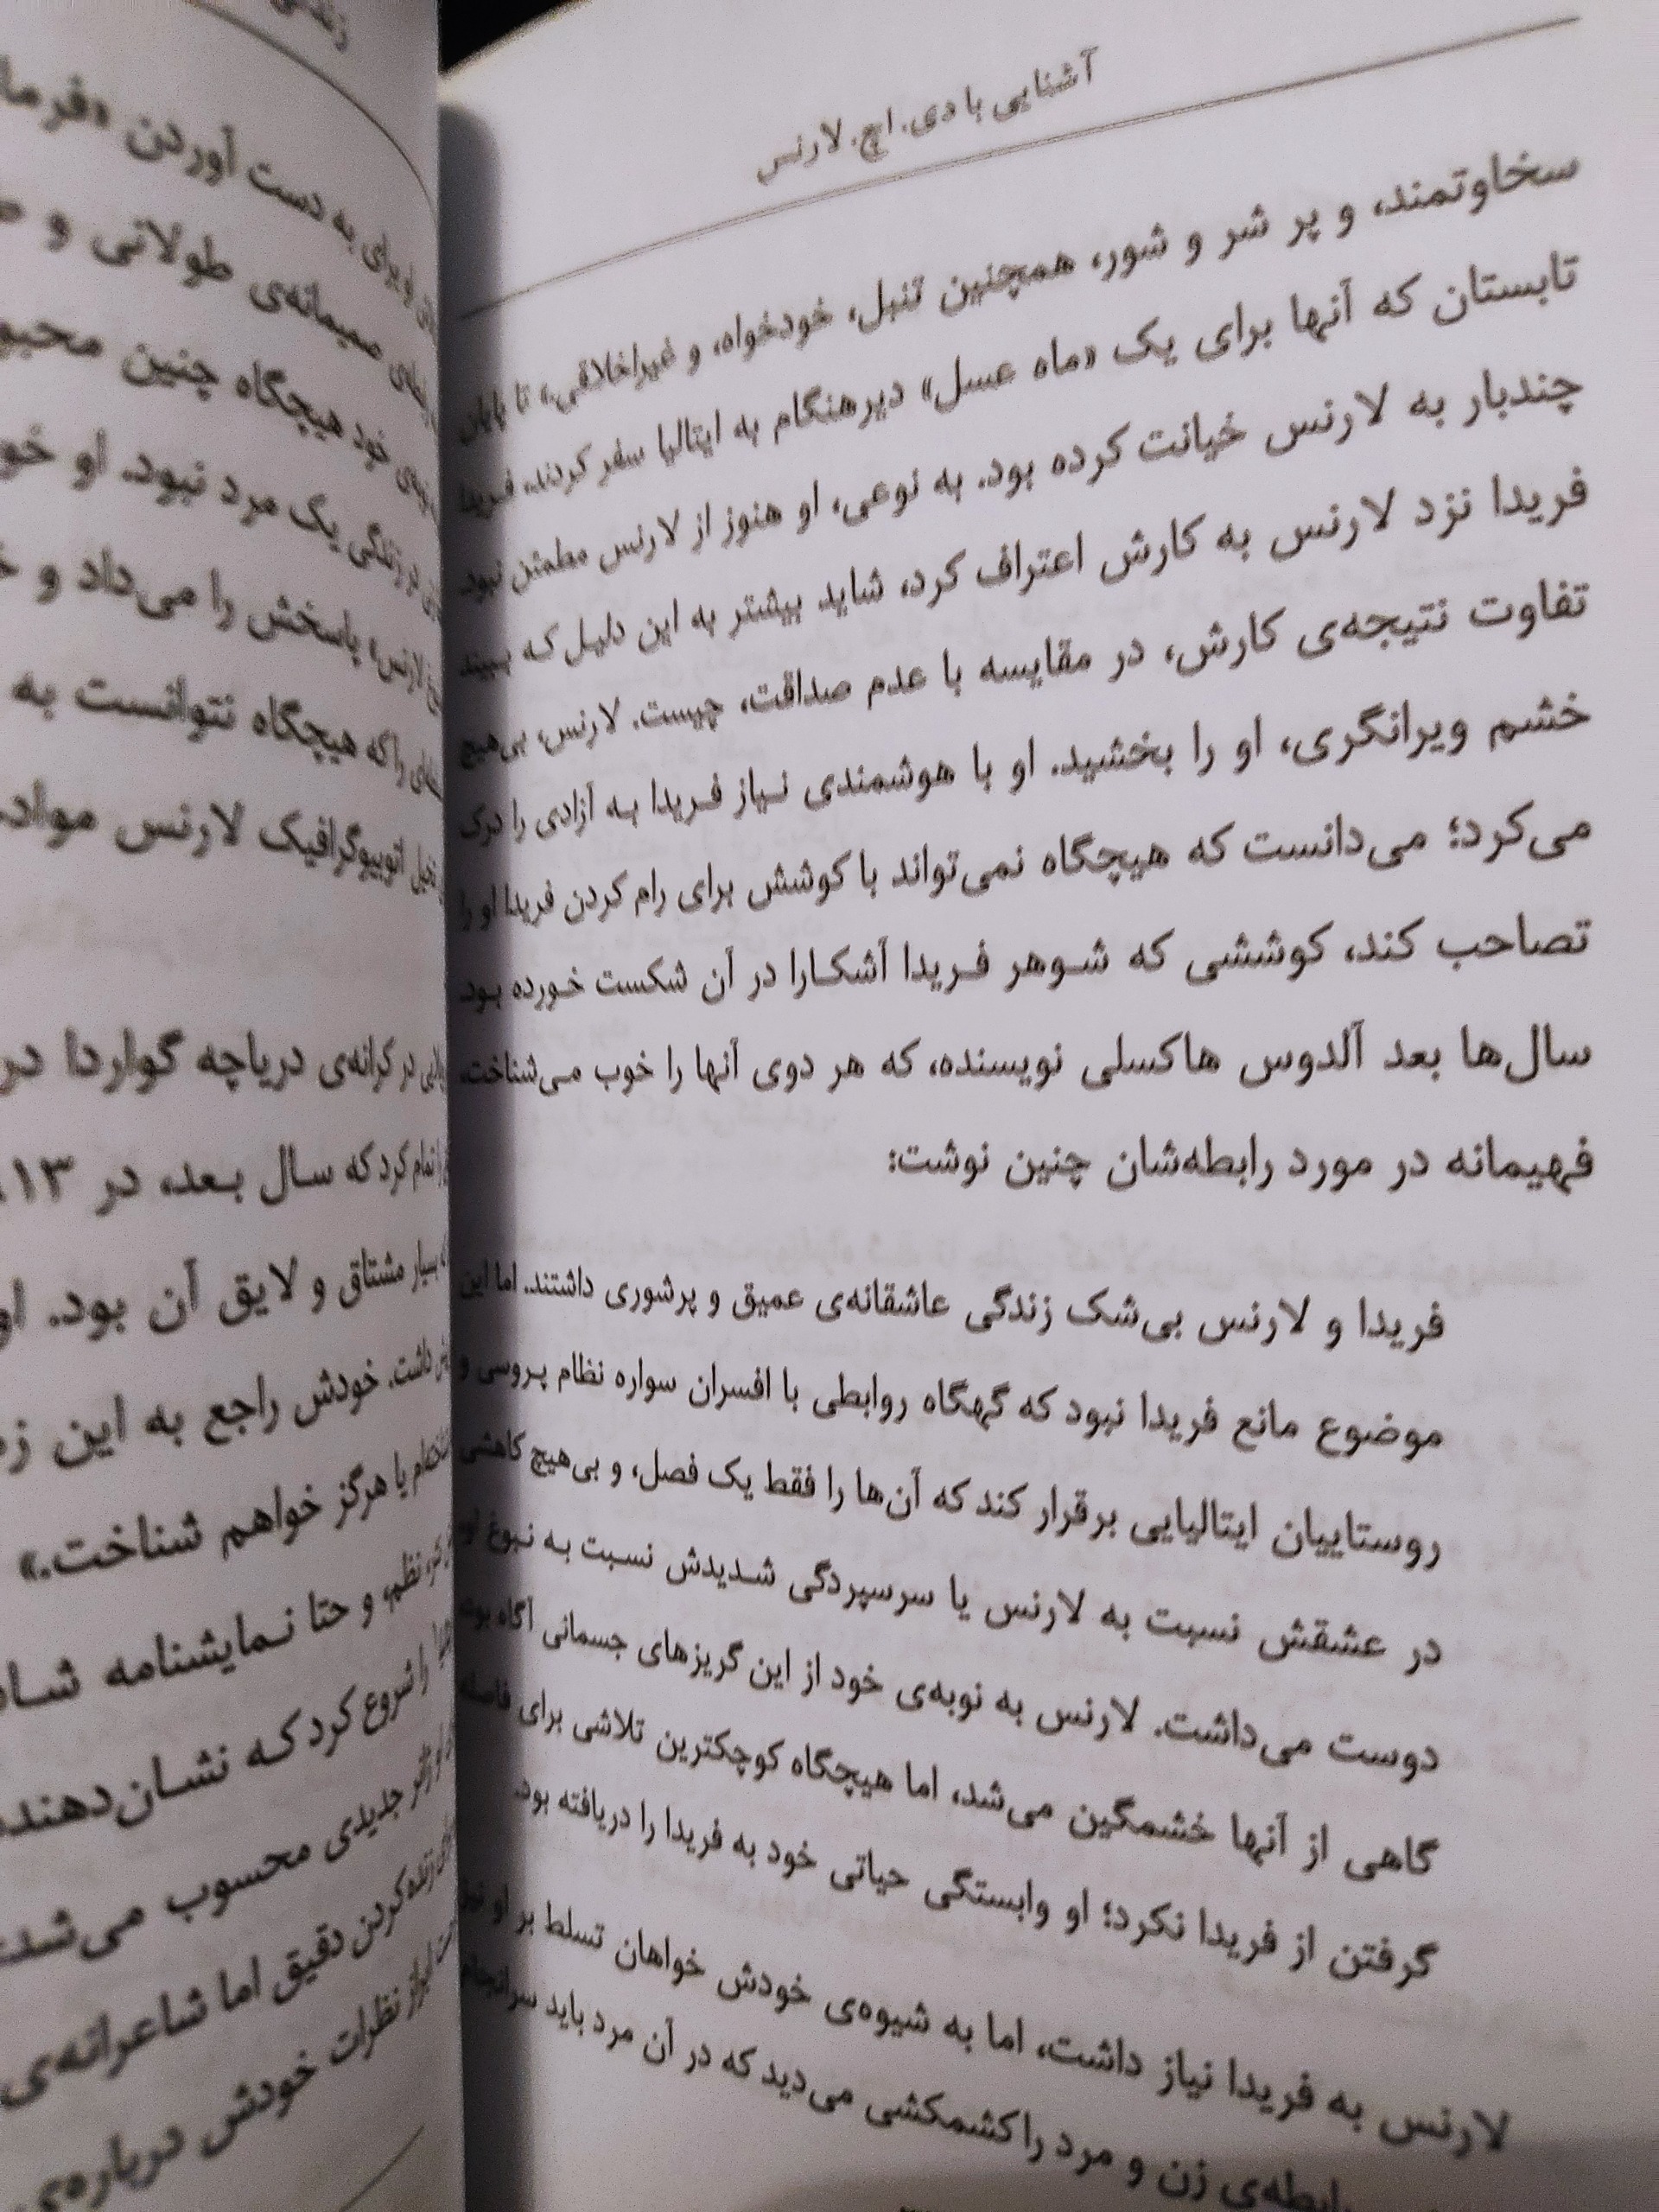 آشنایی با دی. اچ. لارنس
سخاوتمند، و پر شر و شور، همچنین تنبل، خودخواه، و غیراخلاقی.» تا پایان
تابستان که آنها برای یک «ماه عسل» دیرهنگام به ایتالیا سفر کردند، فریدا
چندبار به لارنس خیانت کرده بود. به نوعی، او هنوز از لارنس مطمئن نبود.
فریدا نزد لارنس به کارش اعتراف کرد، شاید بیشتر به این دلیل که ببیند
تفاوت نتیجه‌ی کارش، در مقایسه با عدم صداقت، چیست. لارنس، بی‌هیچ
خشم ویرانگری، او را بخشید. او با هوشمندی نیاز فریدا به آزادی را درک
می‌کرد؛ می‌دانست که هیچگاه نمی‌تواند با کوشش برای رام کردن فریدا او را
تصاحب کند، کوششی که شوهر فریدا آشکارا در آن شکست خورده بود.
سال‌ها بعد آلدوس هاکسلی نویسنده، که هر دوی آنها را خوب می‌شناخت،
فهیمانه در مورد رابطه‌شان چنین نوشت:
فریدا و لارنس بی‌شک زندگی عاشقانه‌ی عمیق و پرشوری داشتند. اما این
موضوع مانع فریدا نبود که گهگاه روابطی با افسران سواره نظام پروسی و
روستاییان ایتالیایی برقرار کند که آن‌ها را فقط یک فصل، و بی‌هیچ کاهشی
در عشقش نسبت به لارنس یا سرسپردگی شدیدش نسبت به نبوغ او
دوست می‌داشت. لارنس به نوبه‌ی خود از این گریزهای جسمانی آگاه بود،
گاهی از آنها خشمگین می‌شد، اما هیچگاه کوچکترین تلاشی برای فاصله
گرفتن از فریدا نکرد؛ او وابستگی حیاتی خود به فریدا را دریافته بود.
لارنس به فریدا نیاز داشت، اما به شیوه‌ی خودش خواهان تسلط بر او نیز
رابطه‌ی زن و مرد را کشمکشی می‌دید که در آن مرد باید سرانجام
به دست آوردن
صمیمانه‌ی طولانی و
خود هیچگاه چنین
در زندگی یک مرد نبود. او
پاسخش را می‌داد و
را که هیچگاه نتوانست به
اتوبیوگرافیک لارنس مواد
در کرانه‌ی دریاچه گواردا در
تمام کرد که سال بعد، در
بسیار مشتاق و لایق آن بود. او
داشت. خودش راجع به این
یا هرگز خواهم شناخت.»
نظم، و حتا نمایشنامه
را شروع کرد که نشان‌دهنده
جدیدی محسوب می‌شد
کردن دقیق اما شاعرانه‌ی
ابراز نظرات خودش درباره‌ی